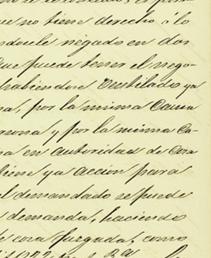 no tiene derecho a lo
negado en dos
que puede tener el nego-
habiendose Ventilado ya
ra, por la misma Causa
sona y por la misma Ca-
sa en autoridad de Cosa
tiene ya accion para
el demandado se puede
demanda, haciendo
de cosa juzgada, como